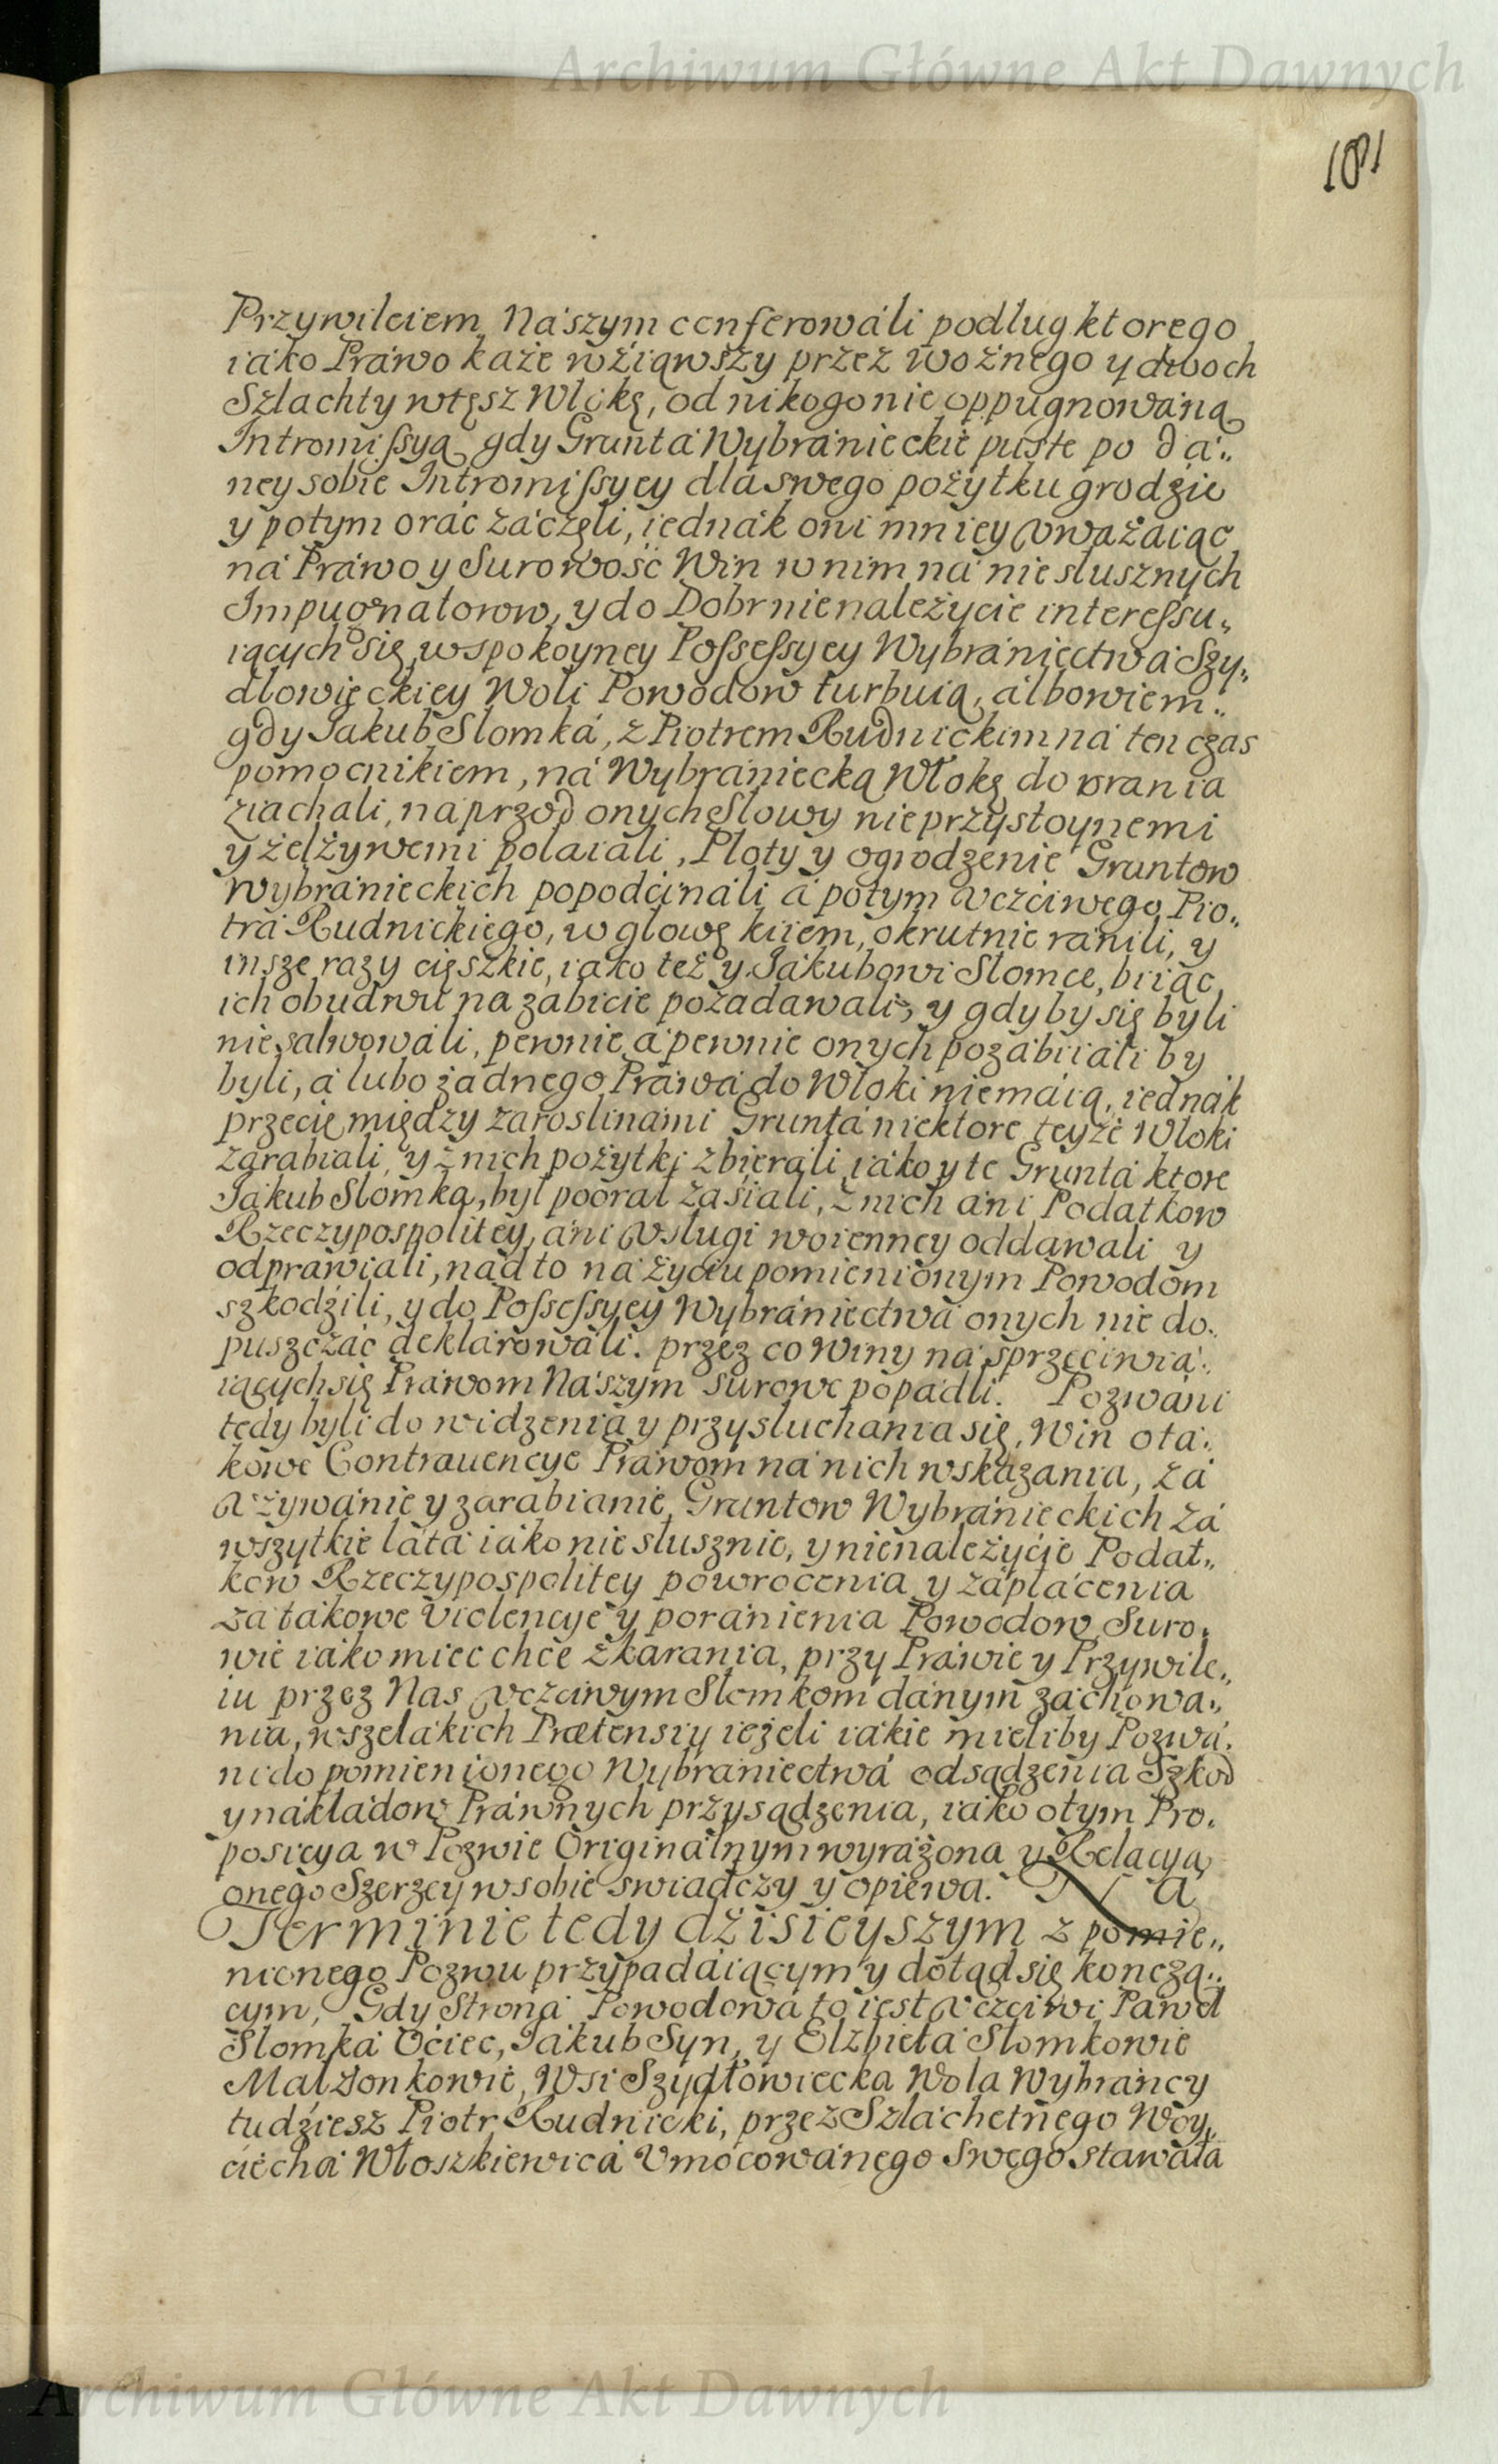 Archiwum Główne Akt Dawnych
181
Przywileiem Nászym conferowáli podług ktorego
iáko Práwo każe wźiąwszy przez woźnego y dwoch
Szlachty wtęsz Wlokę, od nikogo nie oppugnowáną
Intromiſsyą gdy Gruntá Wybránieckie puste po dá„
ney sobie Intromiſsyey dla swego pożytku grodzić
y potym orác záczęli, iednák oni mniey vważáiąc
ná Práwo y Surowość Win w nim ná niesłusznych
Impugnatorow, y do Dobr nienależycie intereſsu„
iących się, w spokoyney Poſseſsyey Wybrániectwá Szy„
dłowieckiey Woli Powodow turbuią, álbowiem„
gdy Jakub Slomká, z Piotrem Rudnickim ná ten czas
pomocnikiem, ná Wybrániecką Włokę do orania
ziachali, naprzod onych Słowy nieprzystoynemi
y zelżywemi połaiali, Płoty y ogrodzenie Gruntow
Wybránieckich popodcináli á potym vczciwego Pio„
trá Rudnickiego, w głowę kiiem, okrutnie ránili, y
insze razy cięszkie, iako też y Jákubowi Słomce, biiąc,
ich obudwu na zabicie pozadawali, y gdyby się byli
nie salwowáli, pewnie á pewnie onych pozábiiali by
byli, á lubo żadnego Práwá do Włoki niemáią, iednák
przecię między zaroslinámi Gruntá niektore teyże Włoki
zarabiali, y z nich pożytki zbierali, iáko y te Gruntá ktore
Jákub Słomka, był poorał zásiali, z nich áni Podatkow
Rzeczypospolitey, áni Vsługi woienney oddawali y
odprawiali, nádto ná życiu pomienionym Powodom
szkodźili, y do Poſseſsyey Wybrániectwá onych nie do„
puszczáć deklárowáli. przez co Winy ná sprzeciwiá„
iących się Práwom Nászym surowe popádli. Pozwáni
tedy byli do widzenia y przysłuchania się, Win o tá„
kowe Contrauencye Práwom ná nich wskazania, zá
vżywánie y zarabianie Gruntow Wybránieckich zá
wszytkie látá iáko niesłusznie, y nienależyćie Podat„
kow Rzeczypospolitey powrocenia y zápłácenia
za tákowe violencye y poránienia Powodow Suro„
wie iáko miec chce zkárania, przy Práwie y Przywile„
iu przez Nas vczciwym Słomkom dánym záchowá„
nia, wszelákich Prætensiy ieżeli iákie mieliby Pozwá„
ni do pomienionego Wybrániectwá odsądzenia Szkod
y nákładow Práwnych przysądzenia, iáko o tym Pro„
posicya w Pozwie Originálnym wyráżona y Relacya
onego Szerzey w sobie świadczy y opiewa. Na
Terminie tedy dźisieyszym z pomie„
nionego Pozwu przypadáiącym y dotąd się kończą„
cym, Gdy Stroná Powodowá to iest vczciwi Páweł
Słomká Ociec, Jákub Syn, y Elżbietá Słomkowie
Małżonkowie, Wsi Szydłowiecka Wola Wybráncy
tudźiesz Piotr Rudnicki, przez Szláchetnego Woy„
ciechá Włoszkiewicá Vmocowánego Swego stawáłá
Archiwum Główne Akt Dawnych